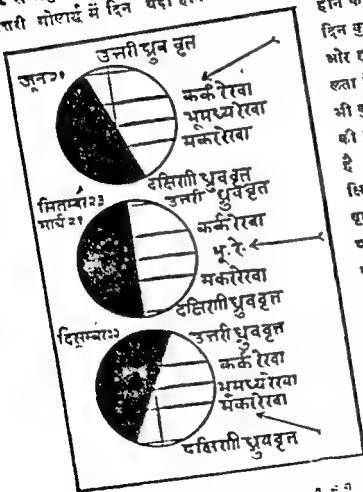 त्तरी गोलार्ध में दिन
उत्तरी ध्रुव वृत
जून २१
कर्क रेखा
भूमध्य रेखा
मकर रेखा
दक्षिणी ध्रुव वृत
सितम्बर २३
मार्च २१
उत्तरी ध्रुव वृत
कर्क रेखा
भू. रे.
मकर रेखा
दक्षिणी ध्रुव वृत
दिसम्बर २२
उत्तरी ध्रुव वृत्त
कर्क रेखा
भूमध्य रेखा
मकर रेखा
दक्षिणी ध्रुव वृत्त
दिन
और
भी
की
है